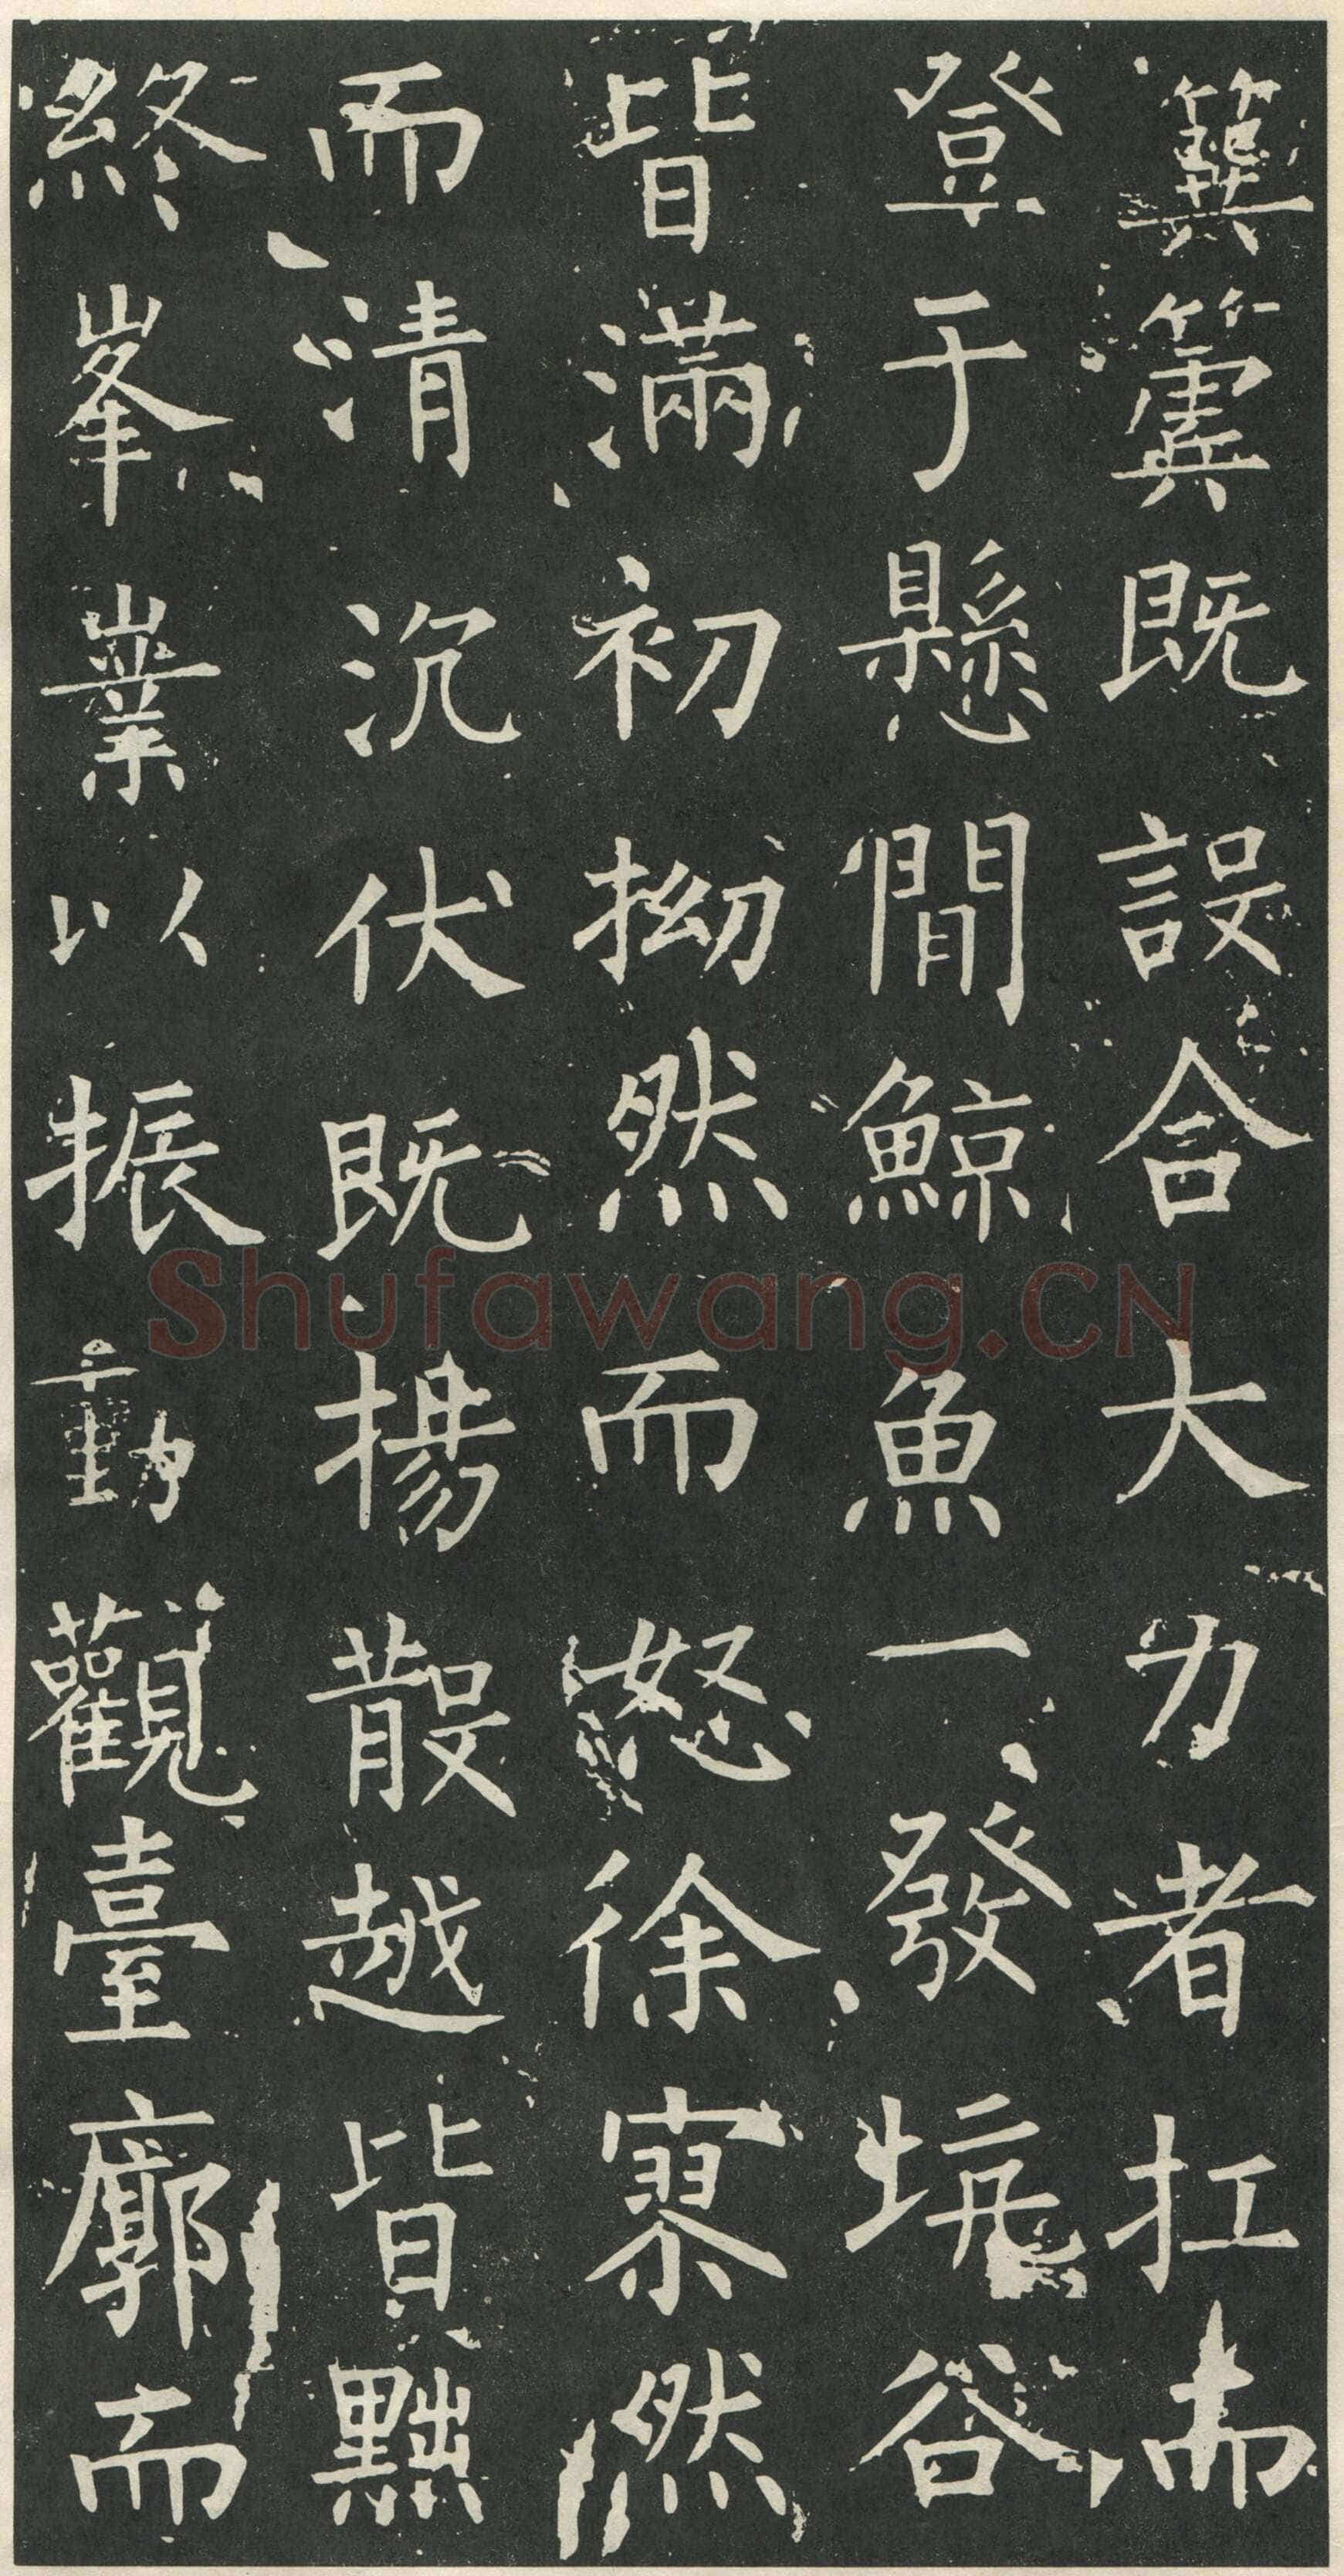 簨簴既設合大力者扛而
登于懸間鯨魚一發坑谷
皆滿初拗然而怒徐寥然
而清沉伏既揚散越皆黜
終峯業以振動觀臺廓而
Shufawang.CN